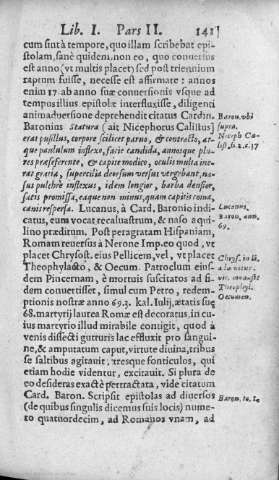 Lib. I. Pars II. 141
cum sint à tempore, quo illam scribebat epi-
stolam, sanè quidem non eo, quo conversus
est anno (vt multis placet) sed post triennium
raptum fuisse, necesse est affirmare: annos
enim 17. ab anno suæ conversionis vsque ad
tempus illius epistolæ interfluxisse, diligenti
animadversione deprehendit citatus Cardin.
Baronius Statura (ait Nicephorus Calistus)
erat pusillus, corpore scilicet parvo, & contracto, at-
que paululum inflexo, facie candida, annosque plu-
res præseferente, & capite modico, oculis multa ine-
rat gratia, supercilia deorsum versus vergebant, na-
sus pulchrè inflexus, idem longior, barba densior,
satis promissa, eaque non minùs, quam capitis coma,
canis respersa. Lucanus, à Card. Baronio indi-
catus, eum vocat recalvastrum, & naso aquili-
no præditum. Post peragratam Hispaniam,
Romam reversus à Nerone Imp. eo quod, vt
placet Chrysost. eius Pellicem, vel, vt placet
Theophylacto, & Oecum. Patroclum eiusf-
dem Pincernam, è mortuis suscitatos ad fi-
dem convertisset, simul cum Petro, redem-
ptionis nostræ anno 69. 3. kal. Iulij, ætatis suę
68. martyrij laurea Romæ est decoratus, in cu-
ius martyrio illud mirabile contigit, quod à
venis dissecti gutturis lac effluxit pro sangui-
ne, & amputatum caput, virtute divina, tribus
se saltibus agitanit: tresque fonticulos, qui
etiam hodie videntur, excitauit. Si plura de
eo desideras exactè pertractata, vide citatum
Card. Baron. Scripsit epistolas ad diversos
(de quibus singulis dicemus suis locis) nume-
ro quatuordecim, ad Romanos vnam, ad
Baron. vbi
supra.
Niceph. Ca-
list. li. 2. c. 37
Lucanus.
Baron. ann.
69.
Chrys.
Theophyl.
Oecumen.
Baron. to. 1.